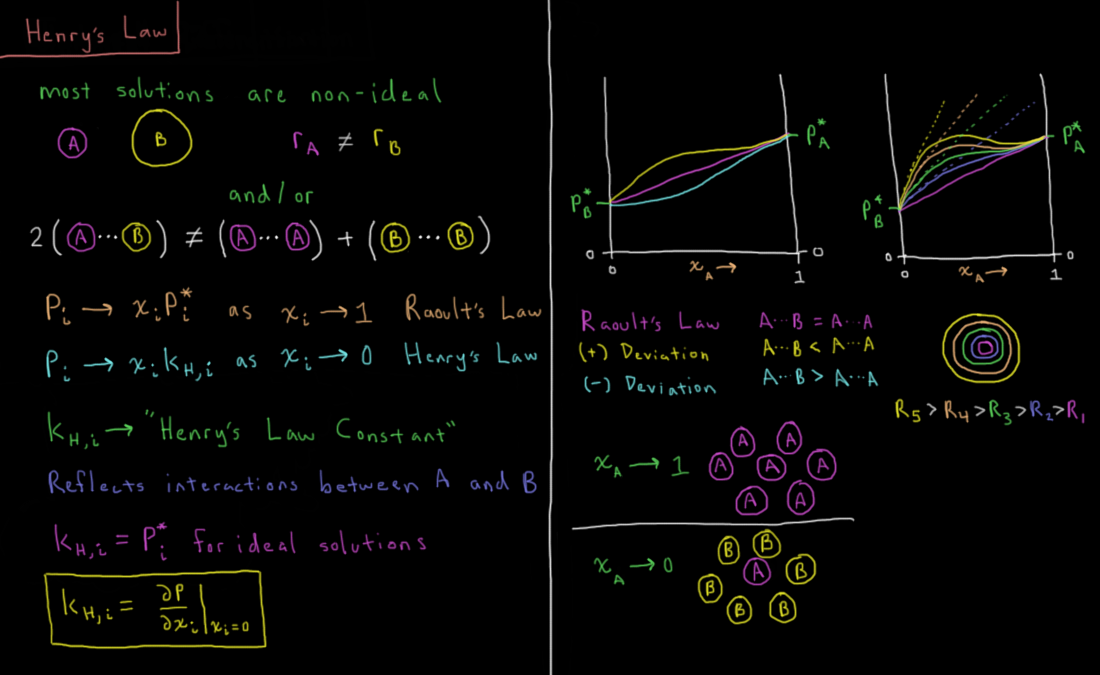 Henry's Law
most solutions are non-ideal
A B r_A ≠ r_B
and/or
2(A···B) ≠ (A···A) + (B···B)
P_i → x_i P_i^* as x_i → 1 Raoult's Law
P_i → x_i k_H,i as x_i → 0 Henry's Law
k_H,i → "Henry's Law Constant"
Reflects interactions between A and B
k_H,i = P_i^* for ideal solutions
k_H,i = ∂P/∂x_i |_x_i=0
P_A^*
P_B^*
0 0
0 x_A → 1
P_A^*
P_B^*
0 0
0 x_A → 1
Raoult's Law A···B = A···A
(+) Deviation A···B < A···A
(-) Deviation A···B > A···A
R_5 > R_4 > R_3 > R_2 > R_1
x_A → 1
A A
A A A
A A
x_A → 0
B B
A B
B
B B